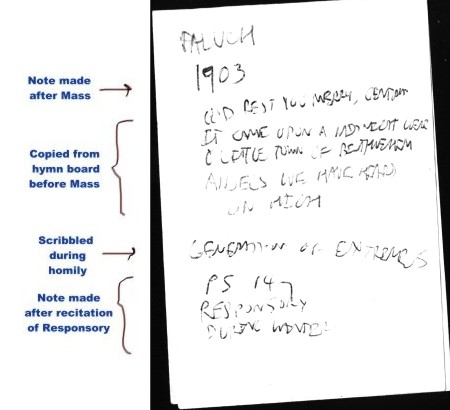 Note made
after Mass
Copied from
hymn board
before Mass
Scribbled
during
homily
Note made
after recitation
of Responsory
PALUCH
1903
GOD REST YOU MERRY,
IT CAME UPON A MIDNIGHT
O LITTLE TOWN OF BETHLEHEM
ANGELS WE HAVE HEARD
ON HIGH
GENERATION OF EXTREMES
PS 147
RESPONSORY
DURING